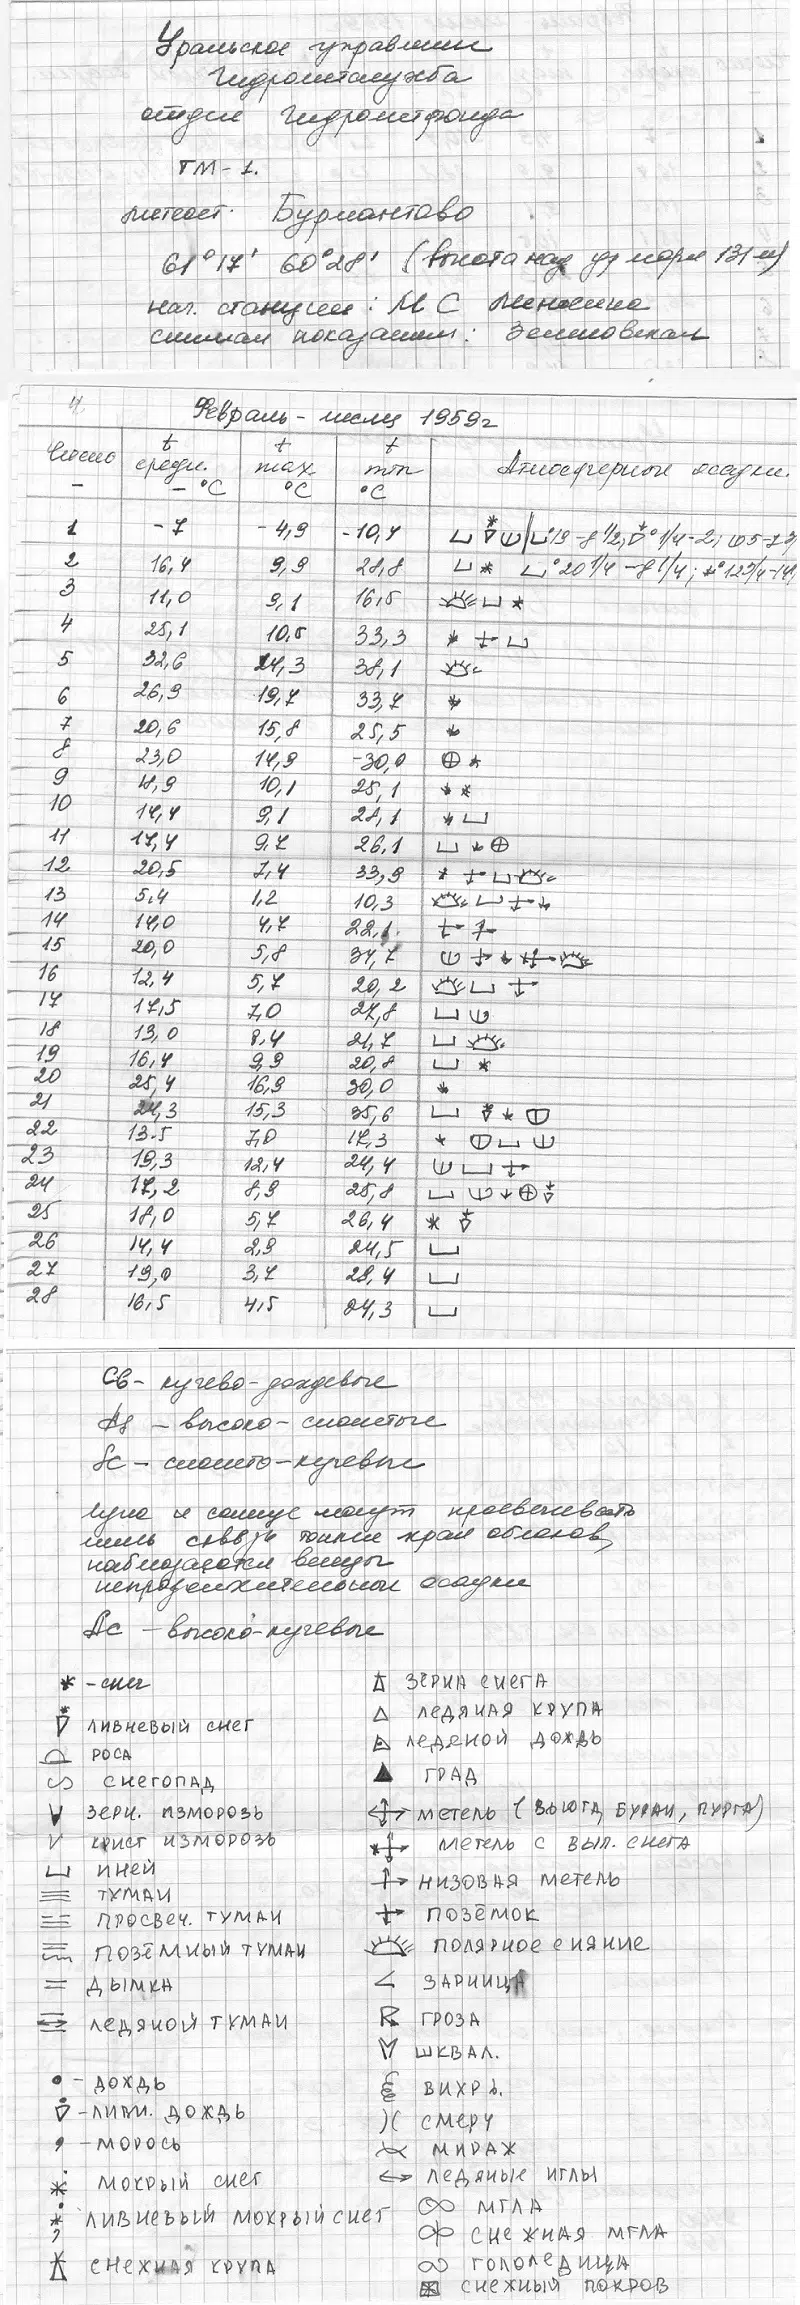 Уральское управление
Гидрометслужба
отдел Гидрометфонда
ТМ-1.
метеост. Бурмантово
61°17' 60°28' (высота над ур моря 131м)
нач. станции: МС
снимал показания:
4.
Февраль-месяц 1959г
Число t средн. t max t min Атмосферные осадки.
- - °C °C °C
1 -7 -4,9 -10,4
2 16,4 9,9 28,8
3 11,0 9,1 16,5
4 25,1 10,5 33,3
5 32,6 24,3 38,1
6 26,9 19,7 33,7
7 20,6 15,8 25,5
8 23,0 14,9 -30,0
9 18,9 10,1 25,1
10 14,4 9,1 28,1
11 17,4 9,7 26,1
12 20,5 7,4 33,9
13 5,4 1,2 10,3
14 14,0 4,7 22,1.
15 20,0 5,8 34,7
16 12,4 5,7 20,2
17 17,5 7,0 27,8
18 13,0 8,4 21,7
19 16,4 9,9 20,8
20 25,4 16,9 30,0
21 24,3 15,3 35,6
22 13.5 7,0 17,3
23 19,3 12,4 24,4
24 17,2 8,9 25,8
25 18,0 5,7 26,4
26 14,4 2,9 24,5
27 19,0 3,7 28,4
28 16,5 4,5 24,3
Св- кучево-дождевые
As - высоко-слоистые
Sc - слоисто-кучевые
луна и солнце могут просвечивать
лишь сквозь тонкие края облаков,
наблюдаются венцы
непродолжительные осадки
Ac - высоко-кучевые
-снег
ЛИВНЕВЫЙ СНЕГ
РОСА
СНЕГОПАД
ЗЕРН. ИЗМОРОЗЬ
КРИСТ ИЗМОРОЗЬ
ИНЕЙ
ТУМАН
ПРОСВЕЧ. ТУМАН
ПОЗЁМНЫЙ ТУМАН
ДЫМКА
ЛЕДЯНОЙ ТУМАН
- ДОЖДЬ
-ЛИВН. ДОЖДЬ
-МОРОСЬ
МОКРЫЙ СНЕГ
ЛИВНЕВЫЙ МОКРЫЙ СНЕГ
СНЕЖНАЯ КРУПА
ЗЁРНА СНЕГА
ЛЕДЯНАЯ КРУПА
ЛЕДЕНОЙ ДОЖДЬ
ГРАД
МЕТЕЛЬ (ВЬЮГА, БУРАН, ПУРГА)
МЕТЕЛЬ С ВЫП. СНЕГА
НИЗОВАЯ МЕТЕЛЬ
ПОЗЁМОК
ПОЛЯРНОЕ СИЯНИЕ
ЗАРНИЦА
ГРОЗА
ШКВАЛ.
ВИХРЬ.
СМЕРЧ
МИРАЖ
ЛЕДЯНЫЕ ИГЛЫ
МГЛА
СНЕЖНАЯ МГЛА
ГОЛОЛЕДИЦА
СНЕЖНЫЙ ПОКРОВ